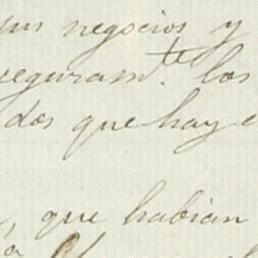 sus negocios y
seguram.te los
dos que hay e
, que habian